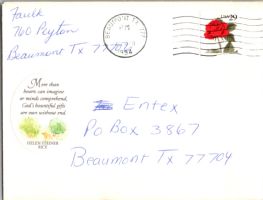 Faulk
760 Peyton
Beaumont Tx 77704
BEAUMONT TX 777
PM
USA 29
More than
hearts can imagine
or minds comprehend,
God's bountiful gifts
are ours without end.
HELEN STEINER
RICE
Entex
PO Box 3867
Beaumont Tx 77704